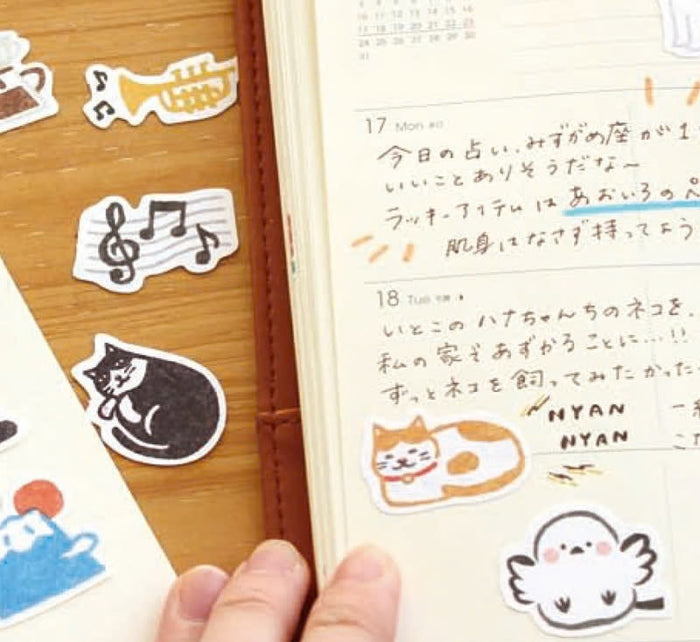 10 11 12 13 14 15 16
17 18 19 20 21 22 23
24 25 26 27 28 29 30
31
17 Mon
今日の占い、みずがめ座が1
いいことありそうだな〜
ラッキーアイテムは あおいろのペ
肌身はなさず持ってよう
18 Tue
いとこのハナちゃんちのネコを、
私の家であずかることに…!!
ずっとネコを飼ってみたかった
NYAN
NYAN